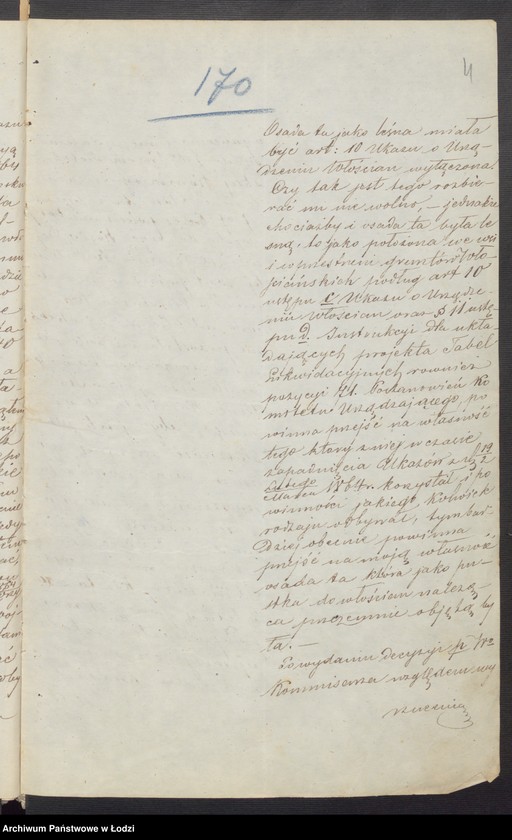 170
4
Osada ta jako leśna miała
być art: 10 Ukazu o Urzą-
dzeniu Włościan wyłączona.
Czy tak jest tego rozbie-
rać mi nie wolno, – jednakże
chociażby i osada ta była le
śną, to jako położona we wsi
i w przestrzeni gruntów Wło-
ściańskich podług art 10
ustępu C Ukazu o Urządze-
niu Włościan oraz § 11 ustę-
pu d. Instrukcyi dla ukła-
dających projekta Tabel
Likwidacyjnych również
pozycyi Postanowień Ko
mitetu Urządzającego, po
winna przejść na własność
tego który z niej w czasie
zapadnięcia Ukazów z d 19
Lutego
2 Marca 1864 r. korzystał i po
winności jakiego kolwiek
rodzaju odbywał, tym bar-
dziej obecnie powinna
przejść na moją własność
osada ta która jako pu-
stka do włościan należą-
ca przezemnie objętą by
ła. –
Po wydaniu decyzyi p. W°
Kommisarza względem wy